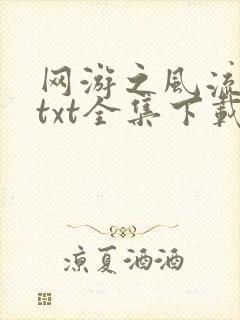 网游之风流
txt全集下载
凉夏洒洒